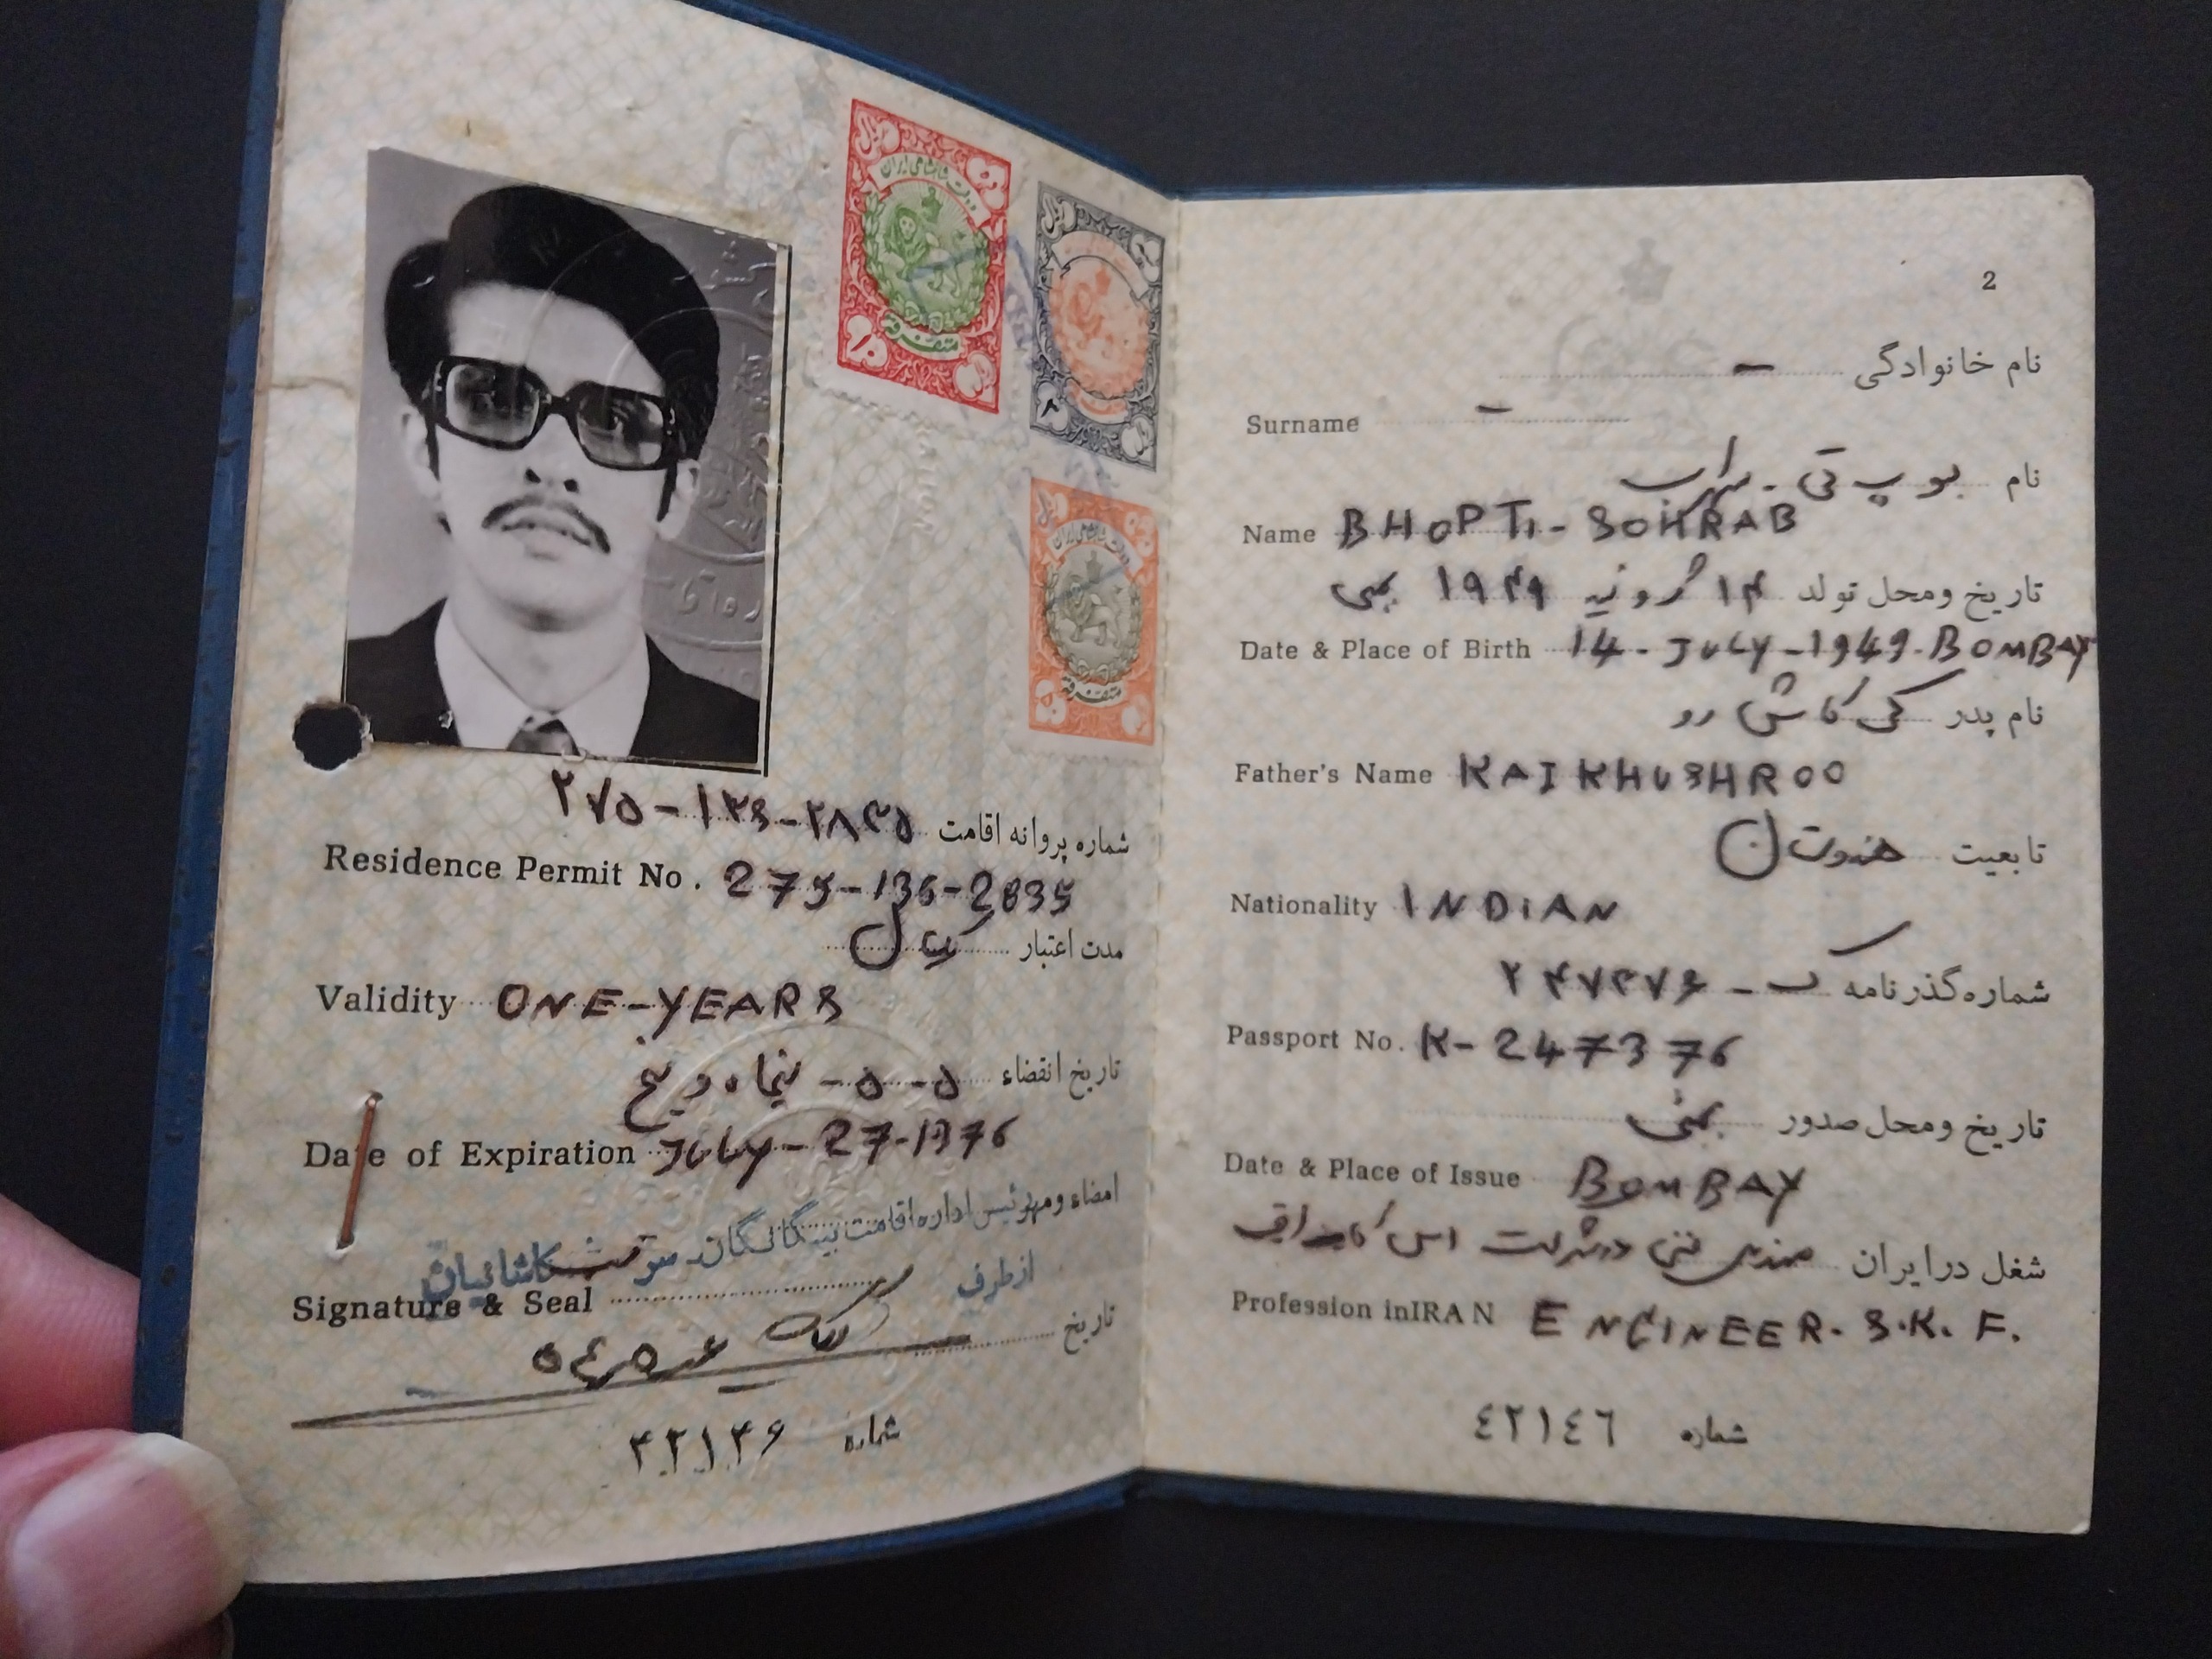 ۲۷۵-۱۳۶-۲۸۳۵ شماره پروانه اقامت
Residence Permit No. 275-136-2835
مدت اعتبار یکسال
Validity ONE-YEARS
تاریخ انقضاء ۵-۵-
Date of Expiration JULY-27-1976
امضاء ومهر رئیس اداره اقامت بیگانگان
از طرف
Signature & Seal
تاریخ
شماره ۴۲۱۴۶
2
نام خانوادگی -
Surname -
نام بو پ تی - سهراب
Name BHOPTI-SOHRAB
تاریخ و محل تولد ۱۴ ژوئیه ۱۹۴۹ بمبی
Date & Place of Birth 14-JULY-1949-BOMBAY
نام پدر کی کاش رو
Father's Name KAIKHUSHROO
تابعیت هندوستان
Nationality INDIAN
شماره گذرنامه ک - ۲۴۷۳۷۶
Passport No. K-247376
تاریخ و محل صدور بمبئی
Date & Place of Issue BOMBAY
شغل در ایران مهندس فنی در شرکت اس کا اف
Profession in IRAN ENGINEER. S.K.F.
شماره ٤٢١٤٦